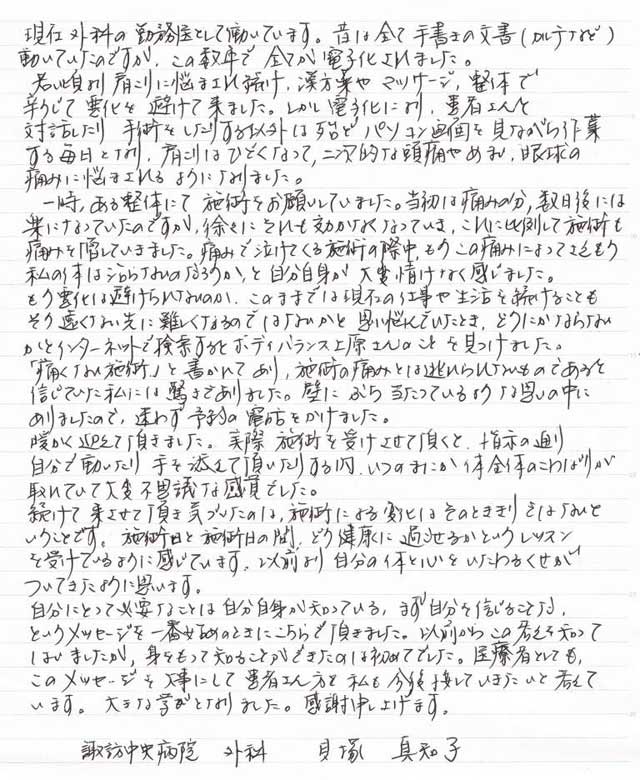 現在外科の勤務医として働いています。昔は全て手書きの文書(カルテなど)
動いていたのですが、この数年で全てが電子化されました。
若い頃より肩こりに悩まされ続け、漢方薬やマッサージ、整体で
辛うじて悪化を避けて来ました。しかし電子化により、患者さんと
対話したり手術をしたりする以外は殆どパソコン画面を見ながら作業
する毎日となり、肩こりはひどくなって、二次的な頭痛やめまい、眼球の
痛みに悩まされるようになりました。
一時、ある整体にて施術をお願いしていました。当初は痛みの分、数日後には
楽になっていたのですが、徐々にそれも効かなくなっていき、これに比例して施術も
痛みを増していきました。痛みで泣けてくる施術の際中、もうこの痛みによってさえもう
私の体は治らないのだろうか、と自分自身が大変情けなく感じました。
もう悪化は避けられないのか、このままでは現在の仕事や生活を続けることも
そう遠くない先に難しくなるのではないかと思い悩んでいたとき、どうにかならない
かとインターネットで検索するとボディバランス上原さんのことを見つけました。
「痛くない施術」と書かれてあり、施術の痛みとは逃れられないものであると
信じていた私には驚きでありました。壁にぶち当たっているような思いの中に
ありましたので、迷わず予約の電話をかけました。
暖かく迎えて頂きました。実際施術を受けさせて頂くと、指示の通り
自分で動いたり手を添えて頂いたりする内、いつのまにか体全体のこわばりが
取れていて大変不思議な感覚でした。
続けて来させて頂き気づいたのは、施術による変化はそのとききりではないと
いうことです。施術日と施術日の間、どう健康に過せるかというレッスン
を受けているように感じています。以前より自分の体と心をいたわるくせが
ついてきたように思います。
自分にとって必要なことは自分自身が知っている、まず自分を信じることだ、
というメッセージを一番始めのときにこちらで頂きました。以前からこの考えを知って
はいましたが、身をもって知ることができたのは初めてでした。医療者としても、
このメッセージを大事にして患者さん方と私も今後接していきたいと考えて
います。大きな学びとなりました。感謝申し上げます。
諏訪中央病院 外科 貝塚 真知子